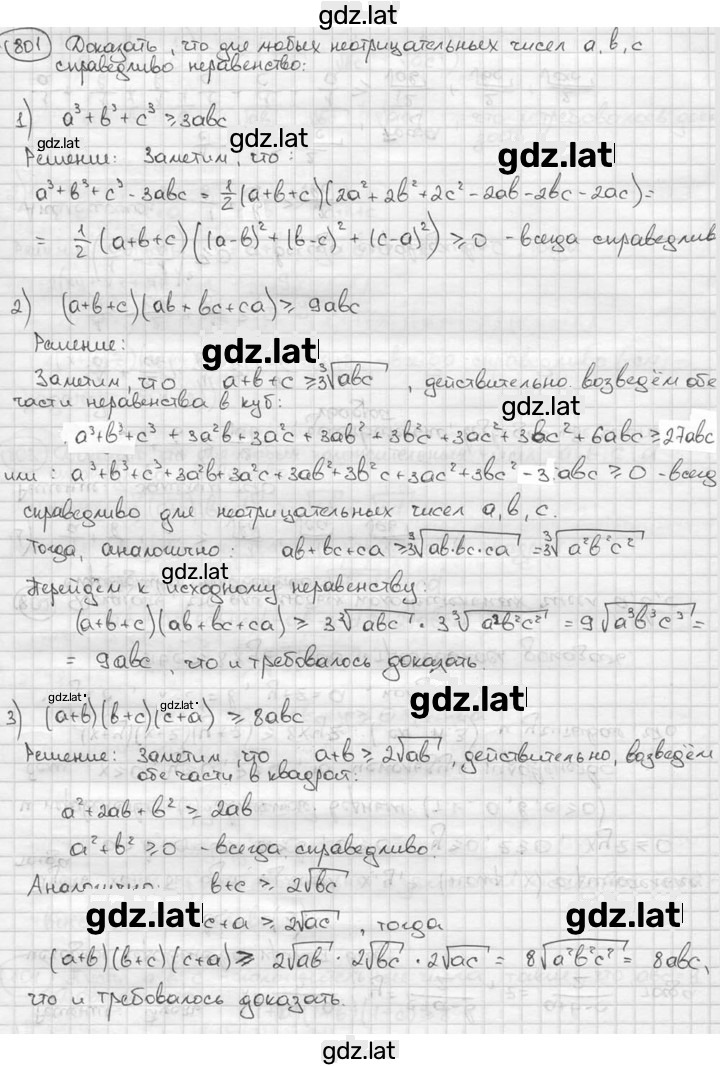 gdz.lat
801 Доказать, что для любых неотрицательных чисел a, b, c
справедливо неравенство:
1) a³+b³+c³ ≥ 3abc
gdz.lat gdz.lat gdz.lat
Решение: Заметим, что:
a³+b³+c³-3abc = 1/2 (a+b+c)(2a²+2b²+2c²-2ab-2bc-2ac)=
= 1/2 (a+b+c)((a-b)²+(b-c)²+(c-a)²) ≥ 0 - всегда справедлив
2) (a+b+c)(ab+bc+ca) ≥ 9abc
Решение:
gdz.lat
Заметим, что a+b+c ≥ 3∛abc, действительно. возведём обе
части неравенства в куб:
gdz.lat
a³+b³+c³ + 3a²b+3a²c+3ab²+3b²c+3ac²+3bc²+6abc ≥ 27abc
или: a³+b³+c³+3a²b+3a²c+3ab²+3b²c+3ac²+3bc²-3.abc ≥ 0 - всегд
справедливо для неотрицательных чисел a, b, c.
Тогда, аналогично: ab+bc+ca ≥ 3∛ab·bc·ca = 3∛a²b²c²
gdz.lat
Перейдём к исходному неравенству:
(a+b+c)(ab+bc+ca) ≥ 3∛abc · 3∛a²b²c² = 9√a³b³c³ =
= 9abc, что и требовалось доказать.
gdz.lat gdz.lat gdz.lat
3) (a+b)(b+c)(c+a) ≥ 8abc
Решение: Заметим, что a+b ≥ 2√ab, действительно, возведём
обе части в квадрат:
a²+2ab+b² ≥ 2ab
a²+b² ≥ 0 - всегда справедливо.
b+c ≥ 2√bc
gdz.lat c+a ≥ 2√ac, тогда gdz.lat
(a+b)(b+c)(c+a) ≥ 2√ab · 2√bc · 2√ac = 8√a²b²c² = 8abc,
что и требовалось доказать.
gdz.lat